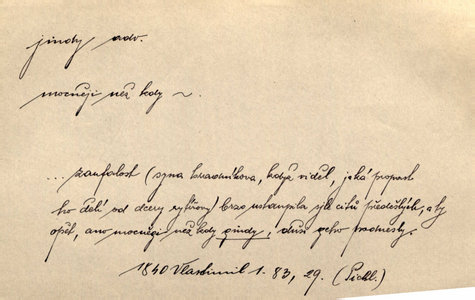 jindy adv.
mocněji než kdy ~.
... zaufalost (syna kravařníkova, když viděl, jaká propast
ho dělí od dcery rytířovy) brzo ustoupila síle citů předešlých, a ty
opět, ano mocněgi než kdy gindy, duši geho podnesty.
1840 Vlastimil 1. 83, 29. (Pichl.)